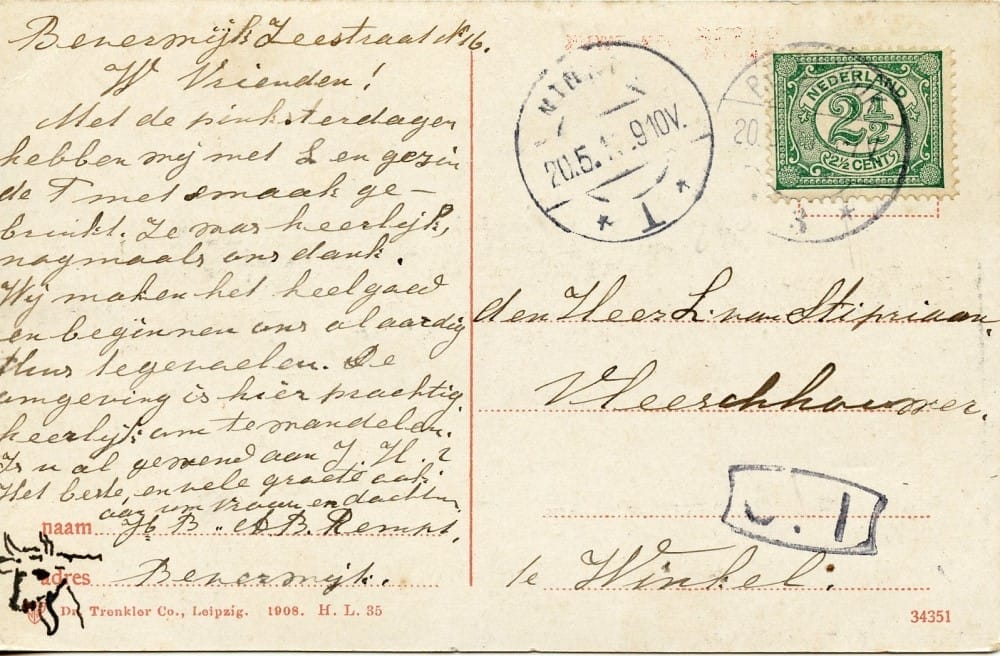 Beverwijk Zeestraat No 16.
W Vrienden!
Met de pinksterdagen
hebben wij met L en gezin
de T met smaak ge-
bruikt. Ze was heerlijk,
nogmaals ons dank.
Wij maken het heel goed
en beginnen ons al aardig
thuis te gevoelen. De
omgeving is hier prachtig
heerlijk om te wandelen.
Is u al gewend aan J. H. ?
Het beste, en vele groete ook
aan uw vrouw en dochter
naam H B. Rempt.
adres Beverwijk.
Dr. Trenkler Co., Leipzig. 1908. H. L. 35
WINK
20.5.1 .910V.
T
20.
3
NEDERLAND
2½
2½ CENT
den Heer L. van Stipriaan,
Vleeschhouwer.
J. 1
te Winkel.
34351